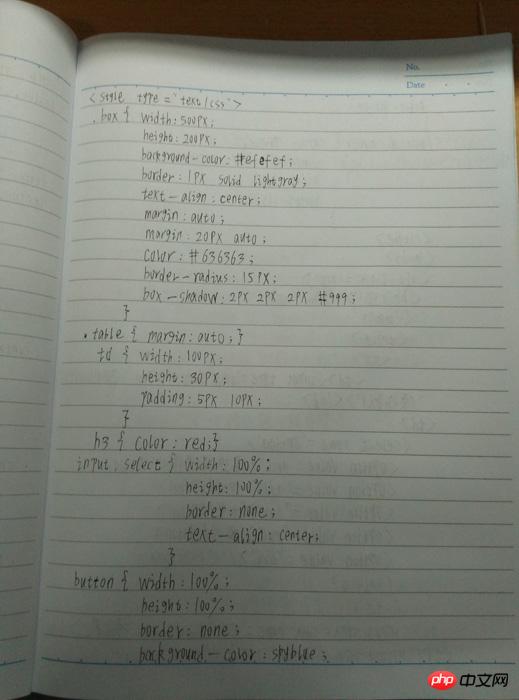 No.
Date
<style type="text/css">
.box { width:500px;
height:200px;
background-color:#efefef;
border:1px solid lightgray;
text-align:center;
margin:auto;
margin:20px auto;
color:#636363;
border-radius:15px;
box-shadow:2px 2px 2px #999;
}
.table { margin:auto;}
td { width:100px;
height:30px;
padding:5px 10px;
}
h3 { color:red;}
input, select { width:100%;
height:100%;
border:none;
text-align:center;
}
button { width:100%;
height:100%;
border:none;
background-color:skyblue;
php 中文网